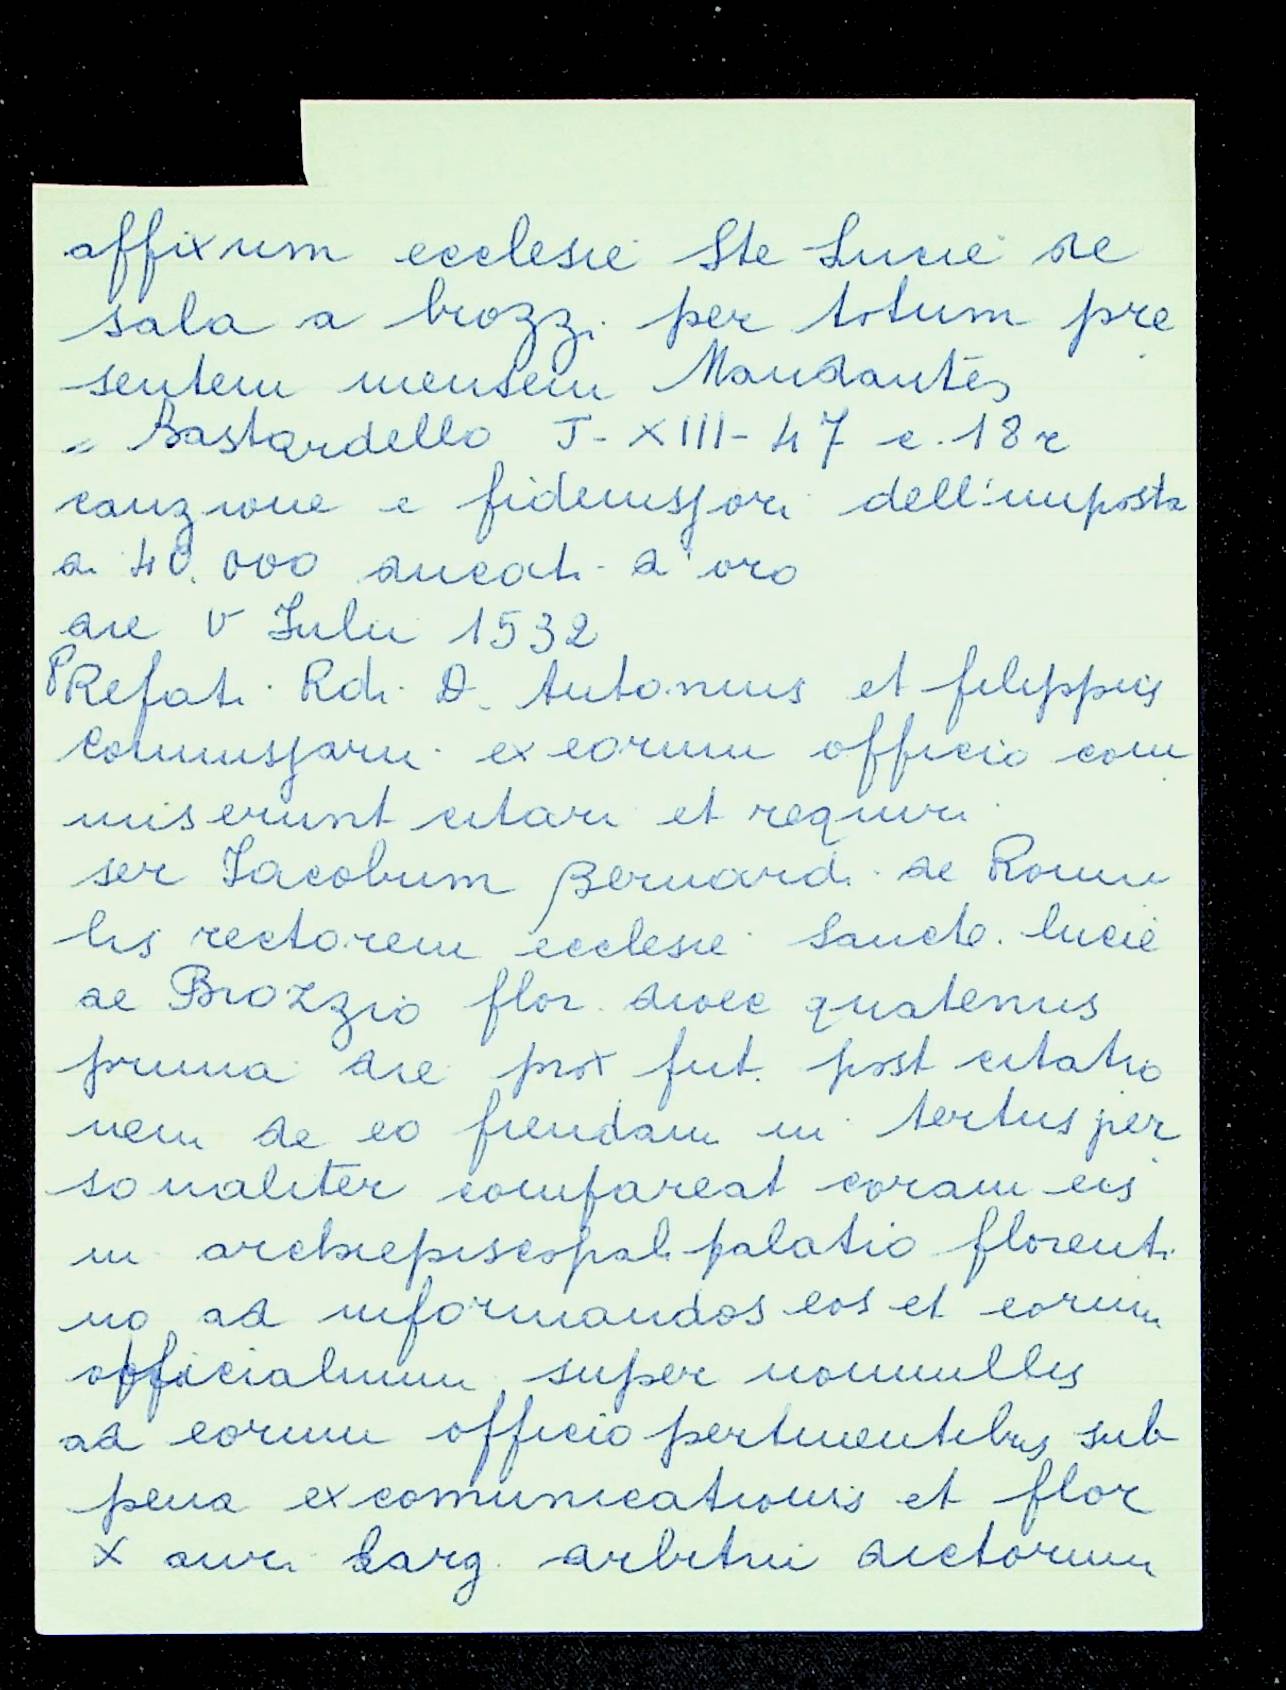 affixum ecclesie Ste Lucie de
sala a brozzi per totum pre
sentem mensem Mandantes
" Bastardello J-XIII-47 c. 18 r
cauzione e fideiussori dell'imposta
di 40.000 ducati d'oro
die V Iulii 1532
PRefati Rdi D. Antonius et filippus
Commissarii ex eorum officio com
miserunt citari et requiri
ser Iacobum Bernardi de Romu
lis rectorem ecclesie Sancte lucie
de Brozzio flor dioec quatenus
prima die prox fut. post citatio
nem de eo fiendam in tertiis per
sonaliter compareat coram eis
in archiepiscopali palatio florenti
no ad informandos eos et eorum
officialium super nonnullis
ad eorum officio pertinentibus sub
pena excomunicationis et flor
X auri larg. arbitrii dictorum